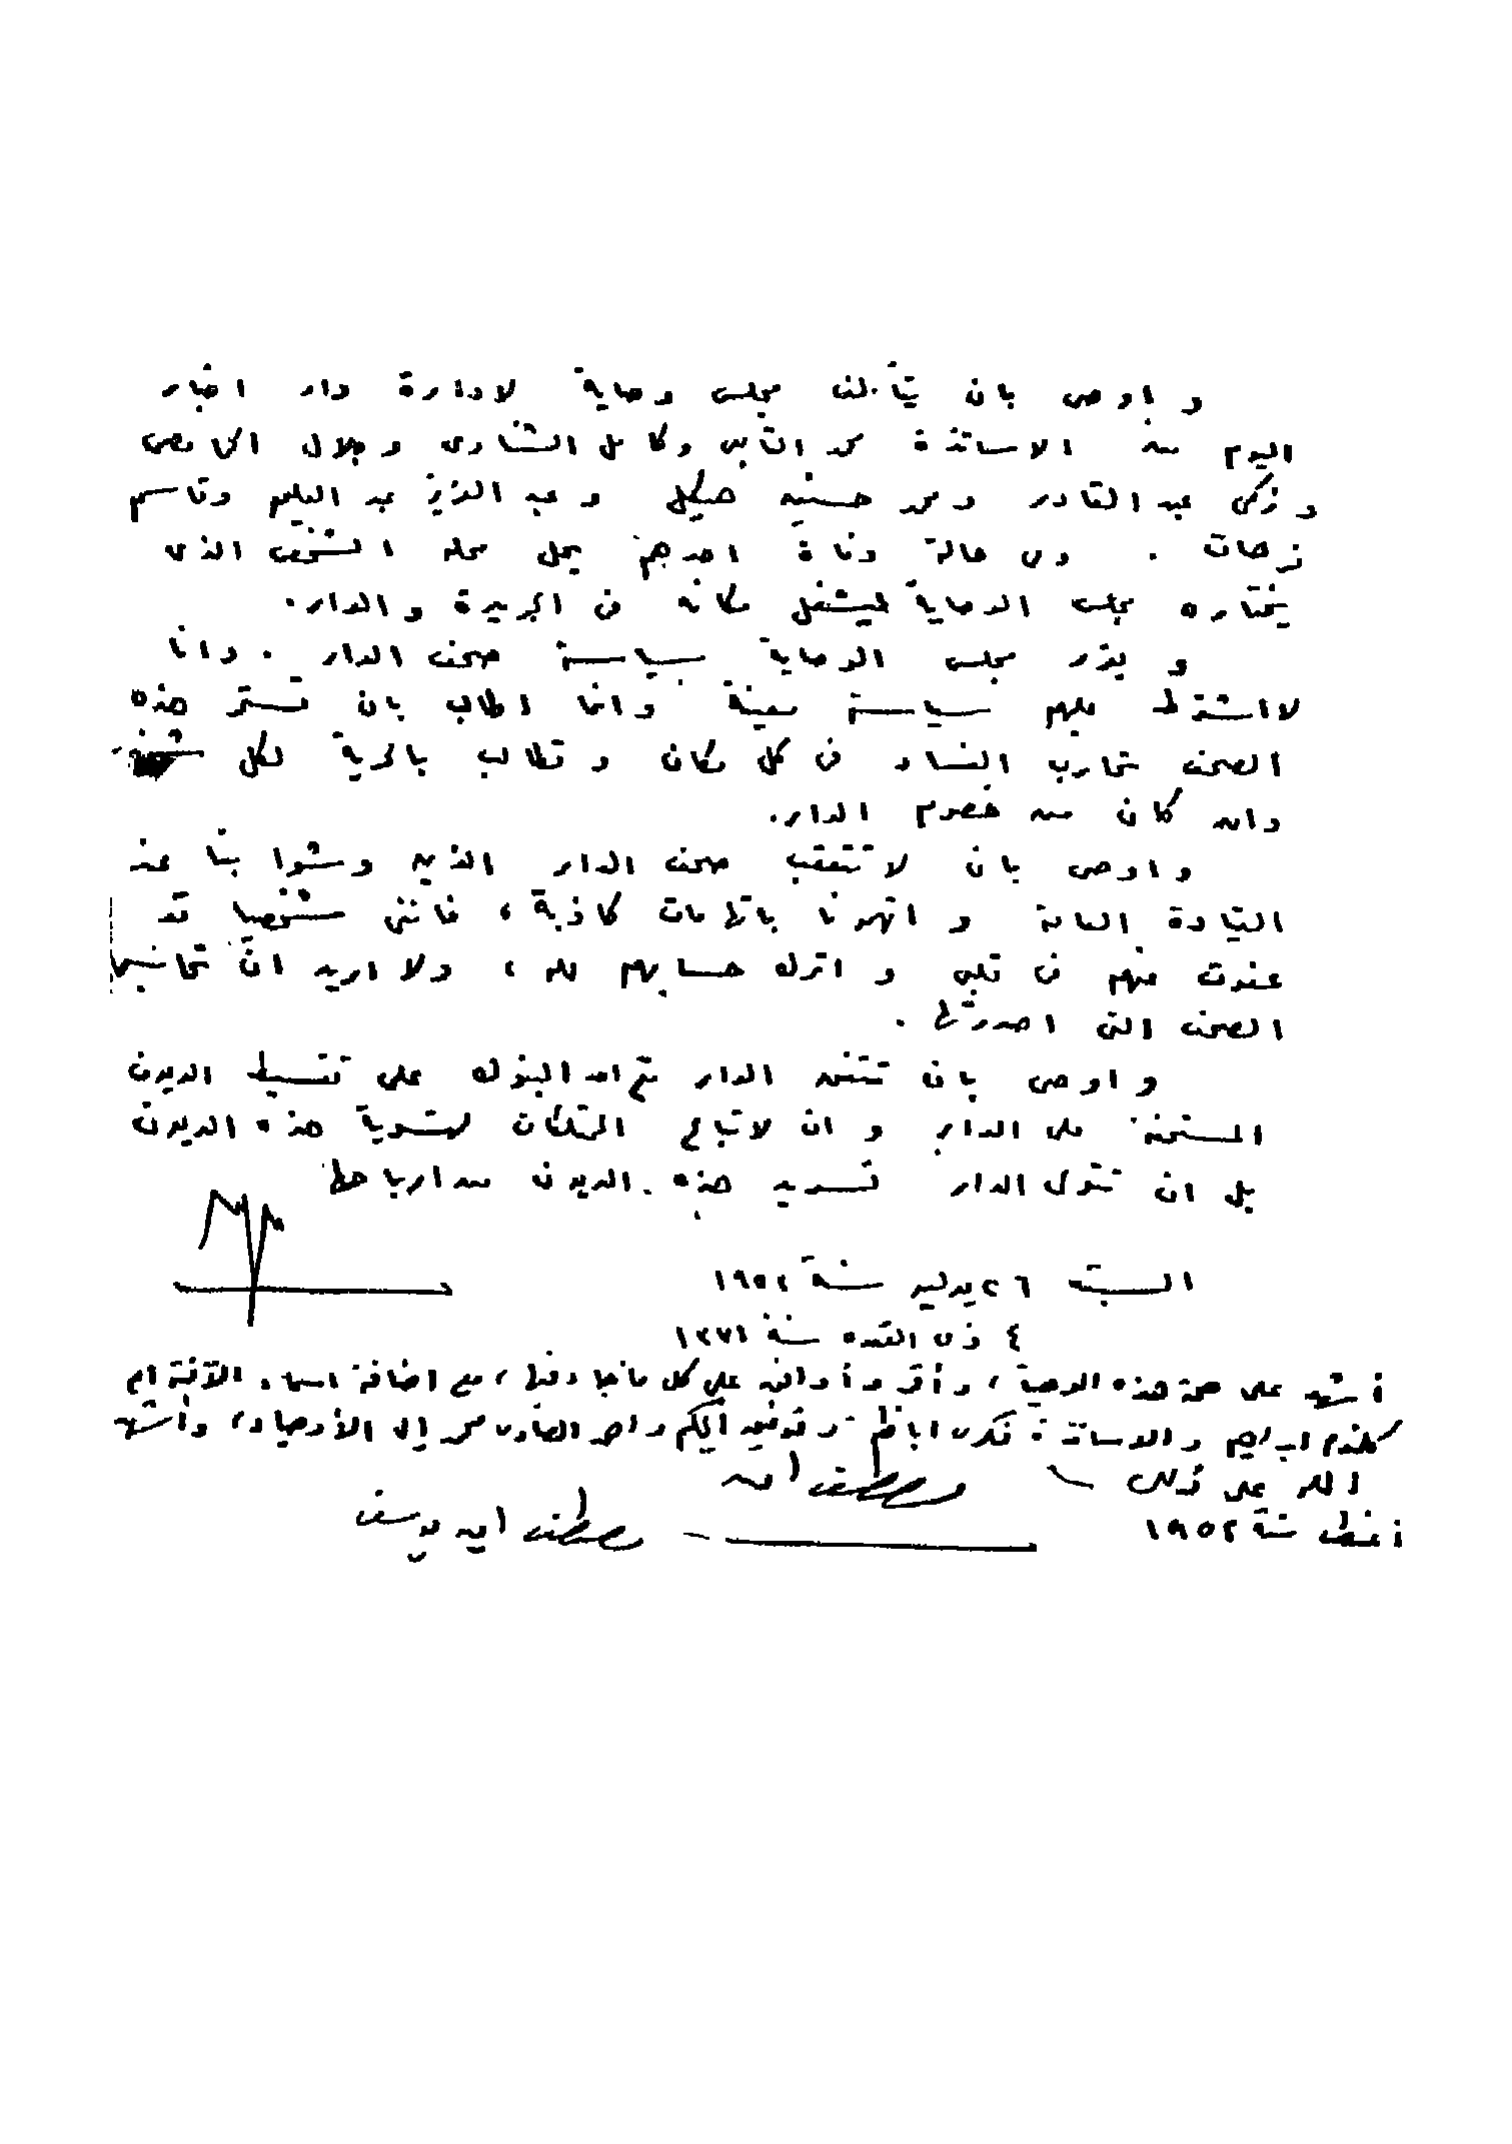 و اوصى بان يتألف مجلس وصاية لادارة دار اخبار
اليوم من الاساتذة محمد التابعى وكامل الشناوى وجلال الحمامصى
و زكى عبد القادر ومحمد حسنين هيكل وعبد العزيز عبد العليم وقاسم
فرحات . وفى حالة وفاة احدهم يحل محله الشخص الذى
يختاره مجلس الوصاية ليشغل مكانه فى الجريدة والدار.
و يقرر مجلس الوصاية سياسة صحف الدار . وانا
لا اشترط عليهم سياسة معينة وانما اطالب بان تستمر هذه
الصحف تحارب الفساد فى كل مكان وتطالب بالحرية لكل شخص
وان كان من خصوم الدار.
و اوصى بان لا تتعقب صحف الدار الذين وشوا بنا عند
القيادة العامة و اتهمونا باتهامات كاذبة ، فاننى شخصيا قد
عفوت عنهم فى قلبى و اترك حسابهم لله ، ولا اريد ان تحاسبهم
الصحف التى اصدرتها .
و اوصى بان تتفق الدار مع احد البنوك على تقسيط الديون
المستحقة على الدار و ان لا تباع الممتلكات لتسوية هذه الديون
بل ان تتولى الدار تسديد هذه الديون من ارباحها
السبت ٢٦ يوليو سنة ١٩٥٢
٤ ذى القعده سنة ١٣٧١
أشهد على صحة هذه الوصية ، وأقر وأوافق على كل ما جاء فيها ، مع اضافة اسماء الآنسة ام
كلثوم ابراهيم والاساتذة فكرى اباظة وتوفيق الحكيم واحمد الصاوى محمد إلى الأوصياء ، وأشهد
الله على ذلك مصطفى امين
أغسطس سنة ١٩٥٢ مصطفى امين يوسف